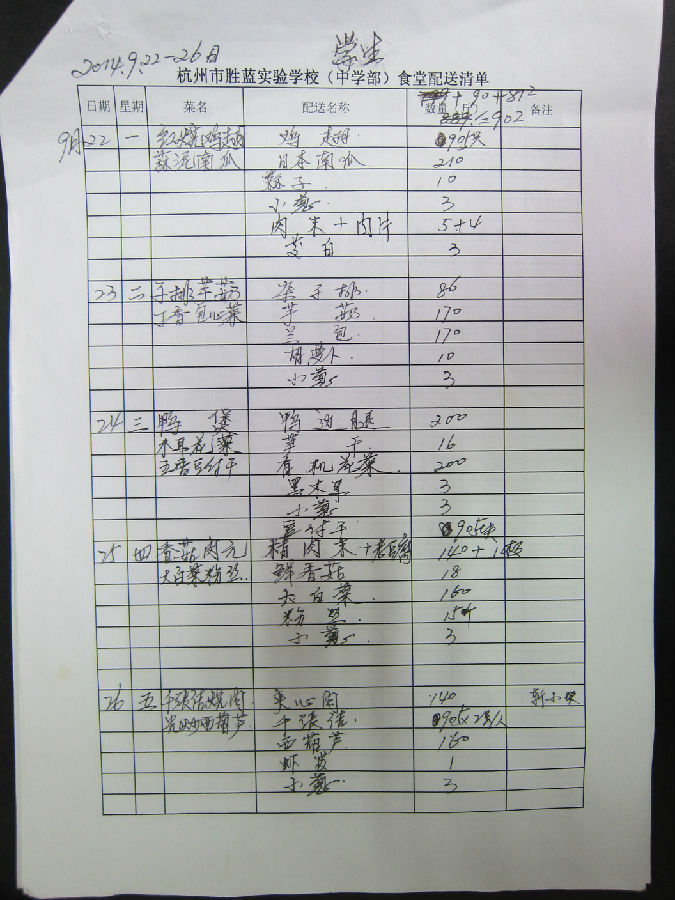 2014.9.22-26日 学生
杭州市胜蓝实验学校（中学部）食堂配送清单
+90+812
=902
日期 星期 菜名 配送名称 数量（斤） 备注
9月22 一 红烧鸡翅 鸡翅 905块
蒜泥南瓜 日本南瓜 210
蒜子 10
小葱 3
肉末+肉片 5+4
茭白 3
23 二 子排芋艿 子排 80
丁香包心菜 芋艿 170
兰包 170
胡萝卜 10
小葱 3
24 三 鸭煲 鸭边腿 200
木耳花菜 笋干 16
五香豆付干 有机花菜 200
黑木耳 3
小葱 3
豆付干 905块
25 四 香菇肉元 精肉末+老豆腐 140+
大白菜粉丝 鲜香菇 18
大白菜 160
粉丝 15斤
小葱 3
26 五 千張结烧肉 夹心肉 140 斩小块
西葫芦 千張结 905
西葫芦 160
虾皮 1
小葱 3